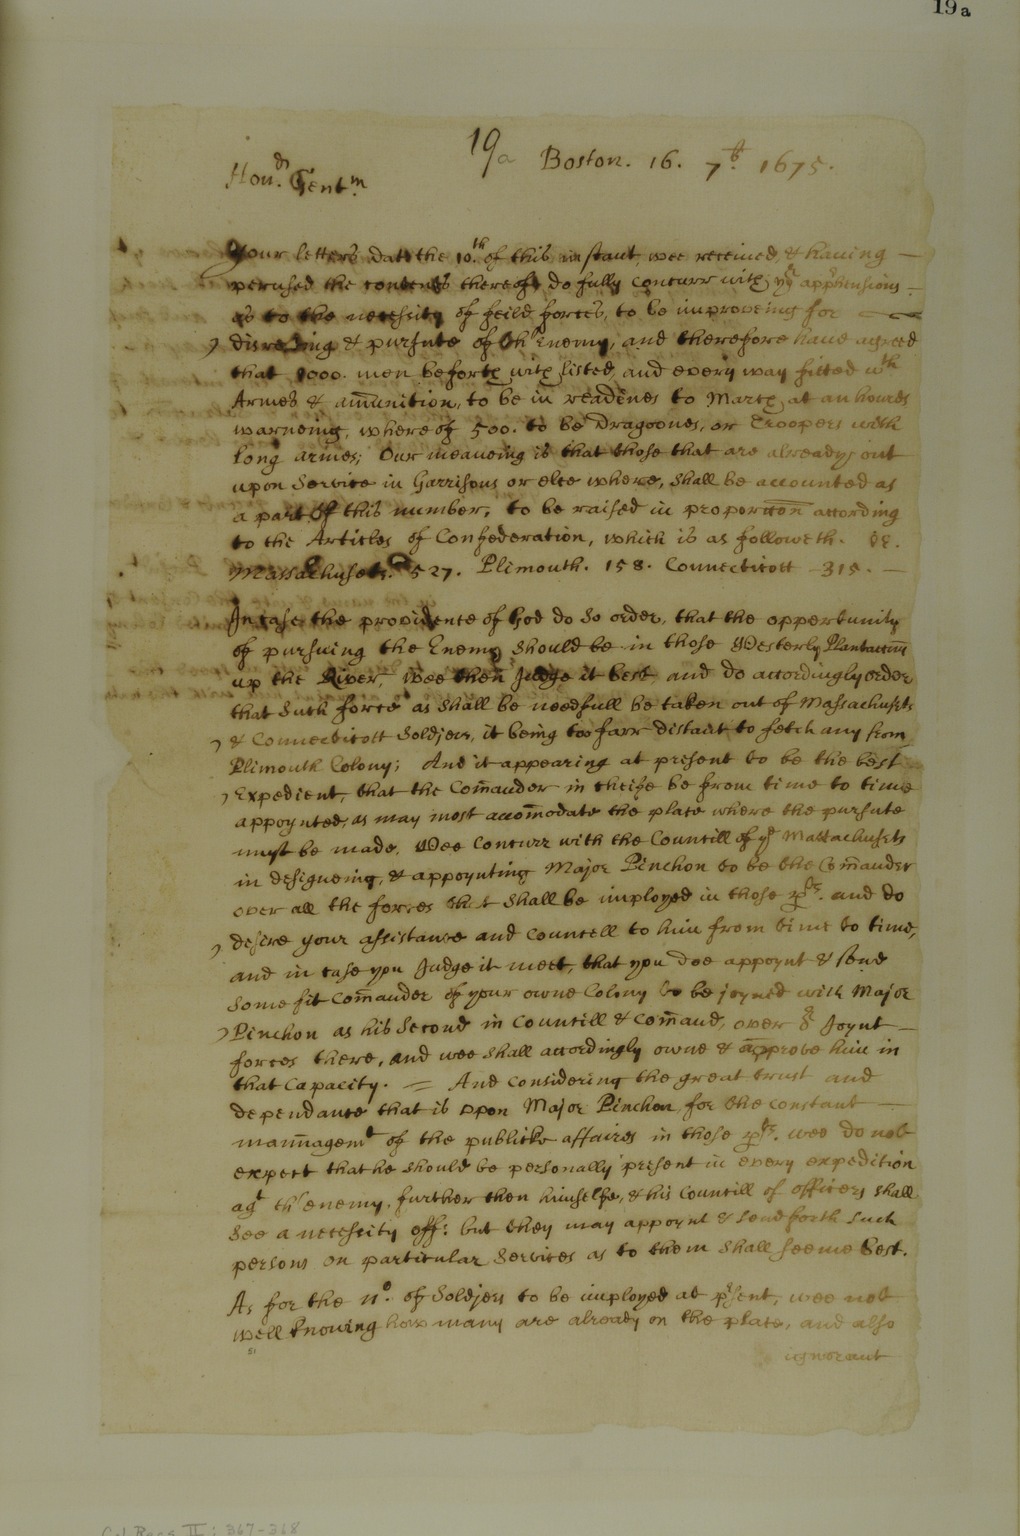 19a
19a Boston. 16. 7br. 1675.
Honrd. Gentm.
Your letters Datd the 10.th of this instant wee received, & having
perused the contents thereof, do fully concurr with yor apprhensions
as to the necessity of feild forces, to be improveing for
discovering & pursute of the Enemy, and therefore have agreed
that 1000. men beforth with listed, and every way fitted wth
Armes & amunition, to be in readines to March at an houres
warneing, whereof 500. to be Dragoones, or Troopers with
long armes; Our meaneing is that those that are already out
upon Service in Garrisons or else where, shall be accounted as
a part of this number, to be raised in proportion according
to the Articles of Confederation, which is as followeth.
Massachusets. 527. Plimouth. 158. Connecticott 315.
In case the providence of God do so order, that the oppertunity
of pursuing the Enemy should be in those Westerly Plantations
up the River, Wee then Judge it best and do accordingly order
that such force as shall be needfull be taken out of Massachusets
& Connecticott Soldjers, it being too farr distant to fetch any from
Plimouth Colony; And it appearing at present to be the best
Expedient, that the Comander in cheife be from time to time
appoynted, as may most accomodate the place where the pursute
must be made. Wee Concurr with the Councill of ye Massachusets
in designeing, & appoynting Major Pinchon to be the Comander
over all the forces that shall be imployed in those pts. and do
desire your assistance and councell to him from time to time,
and in case you Judge it meet, that you doe appoynt & send
some fit Comander of your owne Colony to be joyned with Major
Pinchon as his Second in Councill & Comand, over ye Joynt
forces there, and wee shall accordingly owne & approve him in
that Capacity. = And considering the great trust and
dependance that is upon Major Pinchon for the constant
mannagemt of the publicke affaires in those pts. wee do not
expect that he should be personally present in every expedition
agt the enemy, further then himselfe, & his Councill of officers shall
see a necessity off: but they may appoynt & send forth such
persons on particular Services as to them shall seeme best.
As for the No. of Soldjers to be imployed at prsent, wee not
well knowing how many are already on the place, and also
ignorant
Col Recs II: 367-368